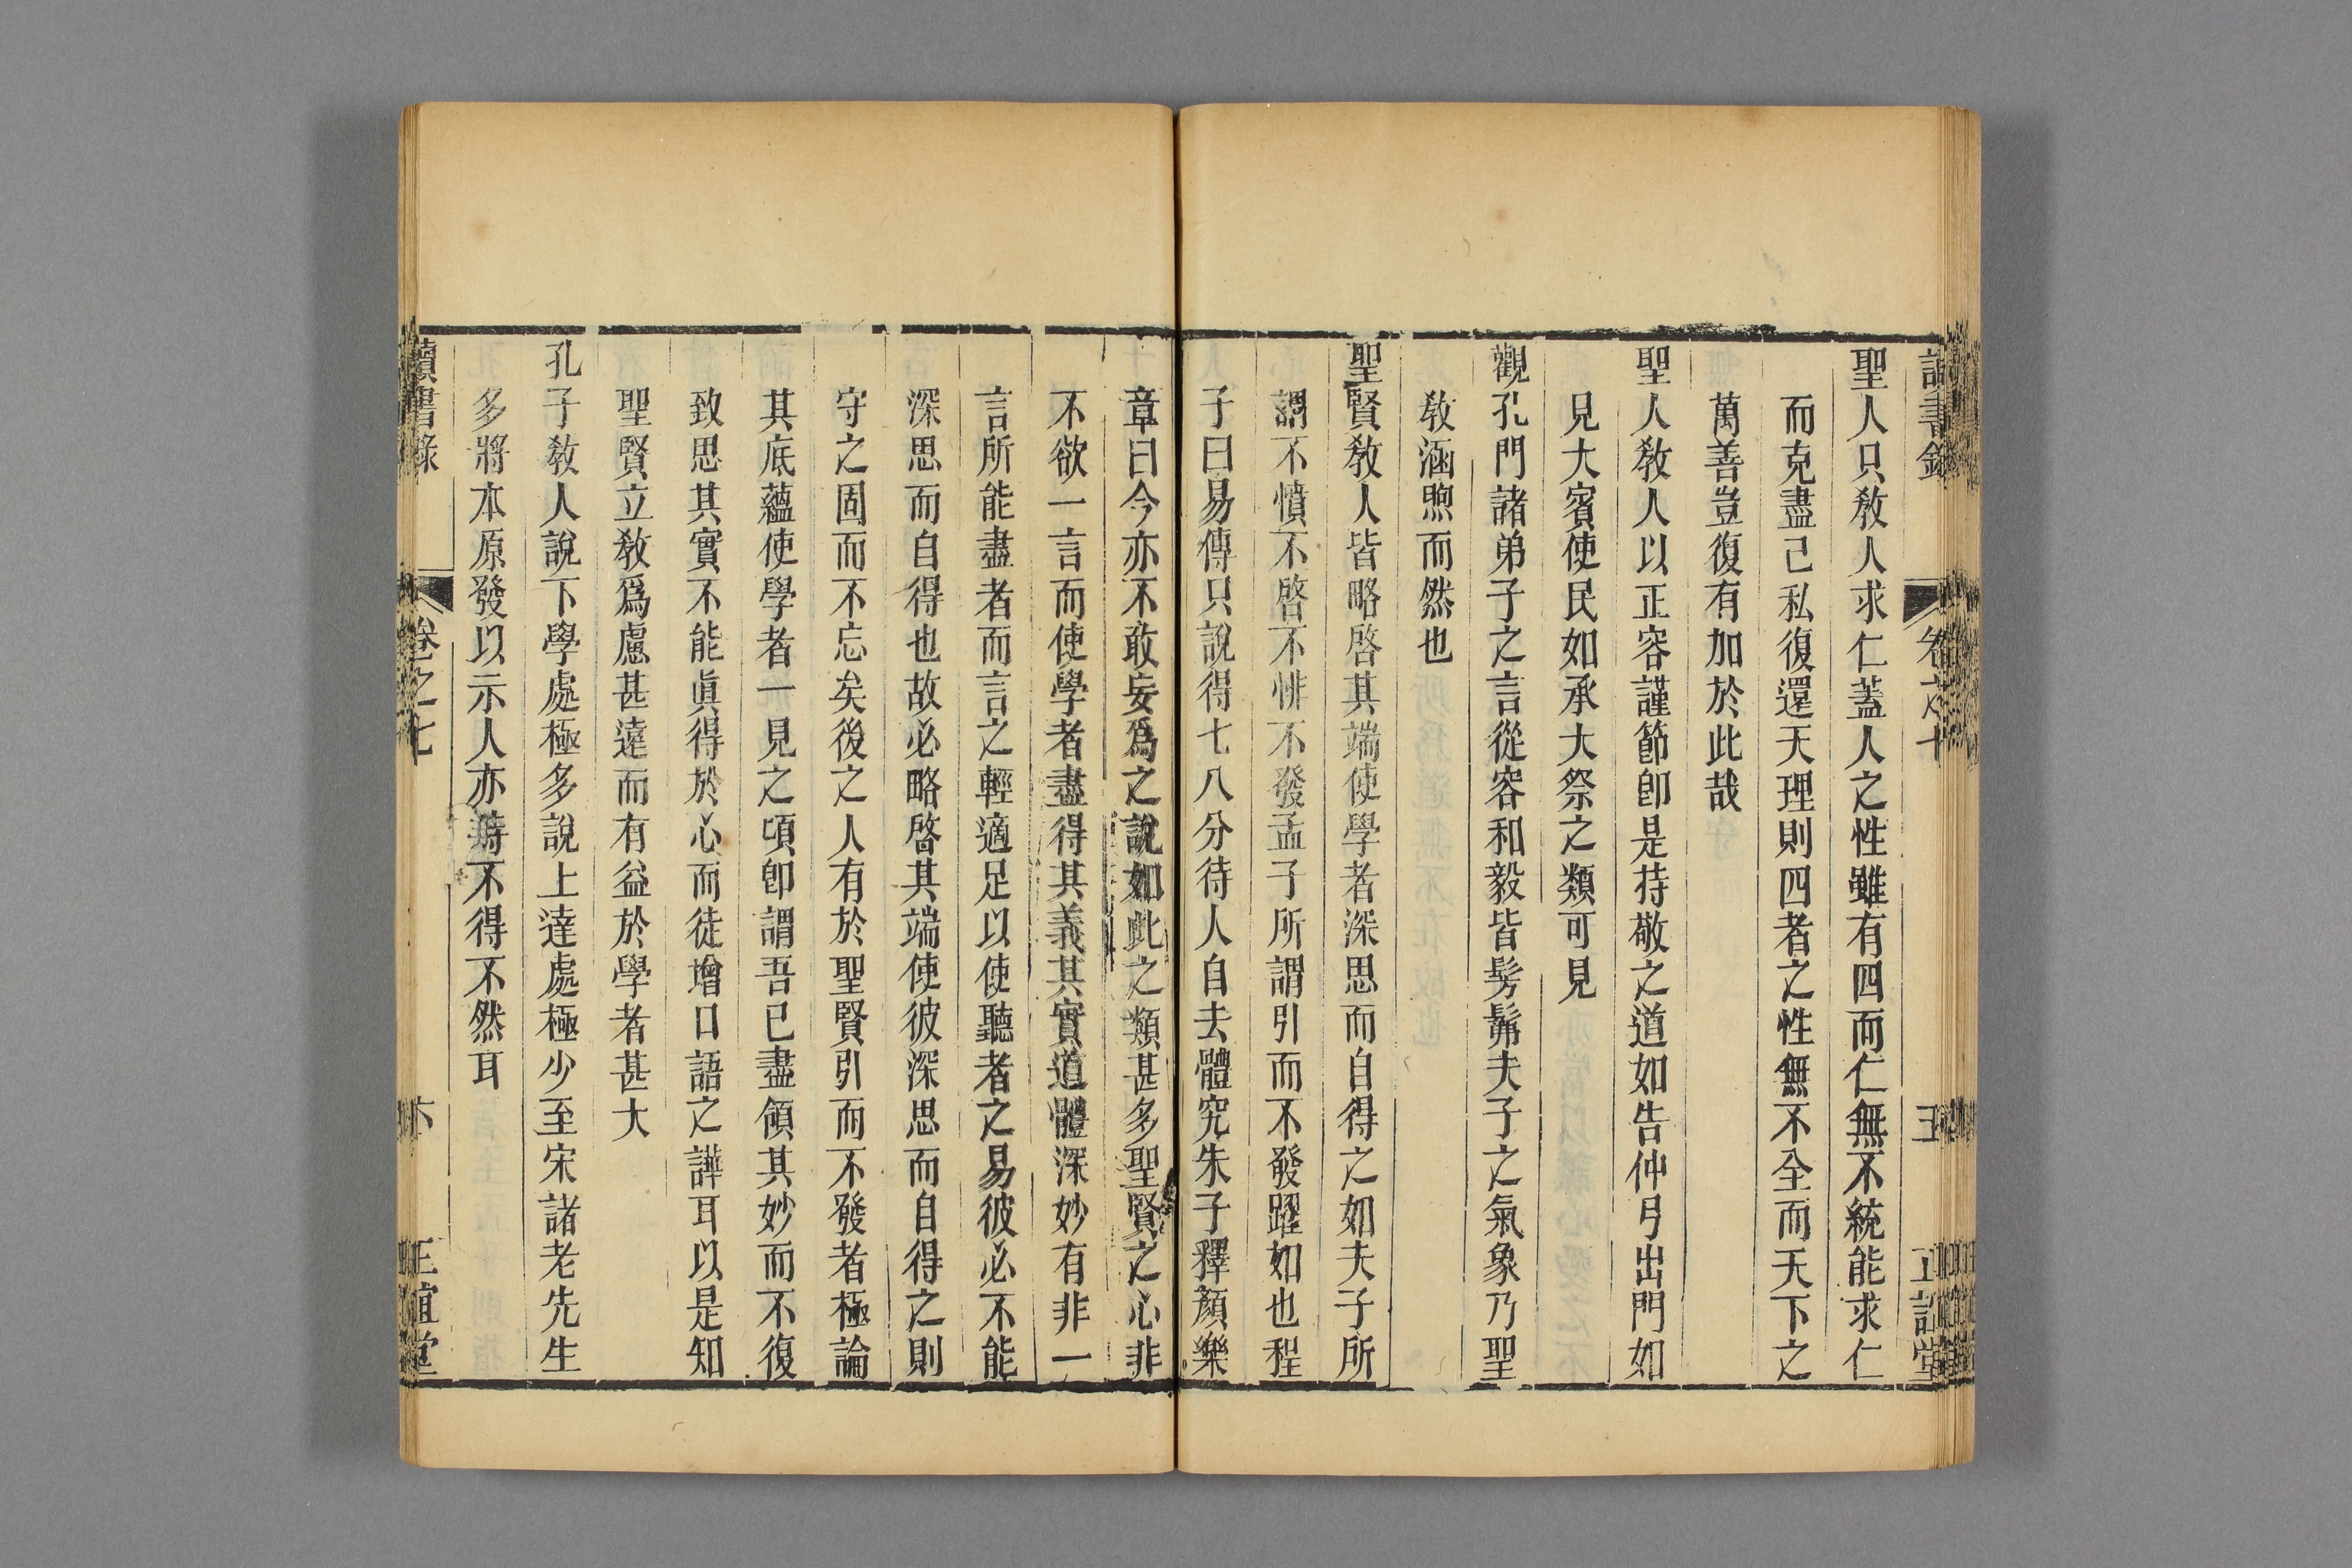 讀書錄 卷之七 五 正誼堂
聖人只敎人求仁蓋人之性雖有四而仁無不統能求仁
而克盡己私復還天理則四者之性無不全而天下之
萬善豈復有加於此哉
聖人敎人以正容謹節卽是持敬之道如告仲弓出門如
見大賓使民如承大祭之類可見
觀孔門諸弟子之言從容和毅皆髣髴夫子之氣象乃聖
敎涵煦而然也
聖賢敎人皆略啓其端使學者深思而自得之如夫子所
謂不憤不啓不悱不發孟子所謂引而不發躍如也程
子曰易傳只說得七八分待人自去體究朱子釋顏樂
章曰今亦不敢妄爲之說如此之類甚多聖賢之心非
不欲一言而使學者盡得其義其實道體深妙有非一
言所能盡者而言之輕適足以使聽者之易彼必不能
深思而自得也故必略啓其端使彼深思而自得之則
守之固而不忘矣後之人有於聖賢引而不發者極論
其底蘊使學者一見之頃卽謂吾已盡領其妙而不復
致思其實不能眞得於心而徒增口語之譁耳以是知
聖賢立敎爲慮甚遠而有益於學者甚大
孔子敎人說下學處極多說上達處極少至宋諸老先生
多將本原發以示人亦時不得不然耳
讀書錄 卷之七 六 正誼堂